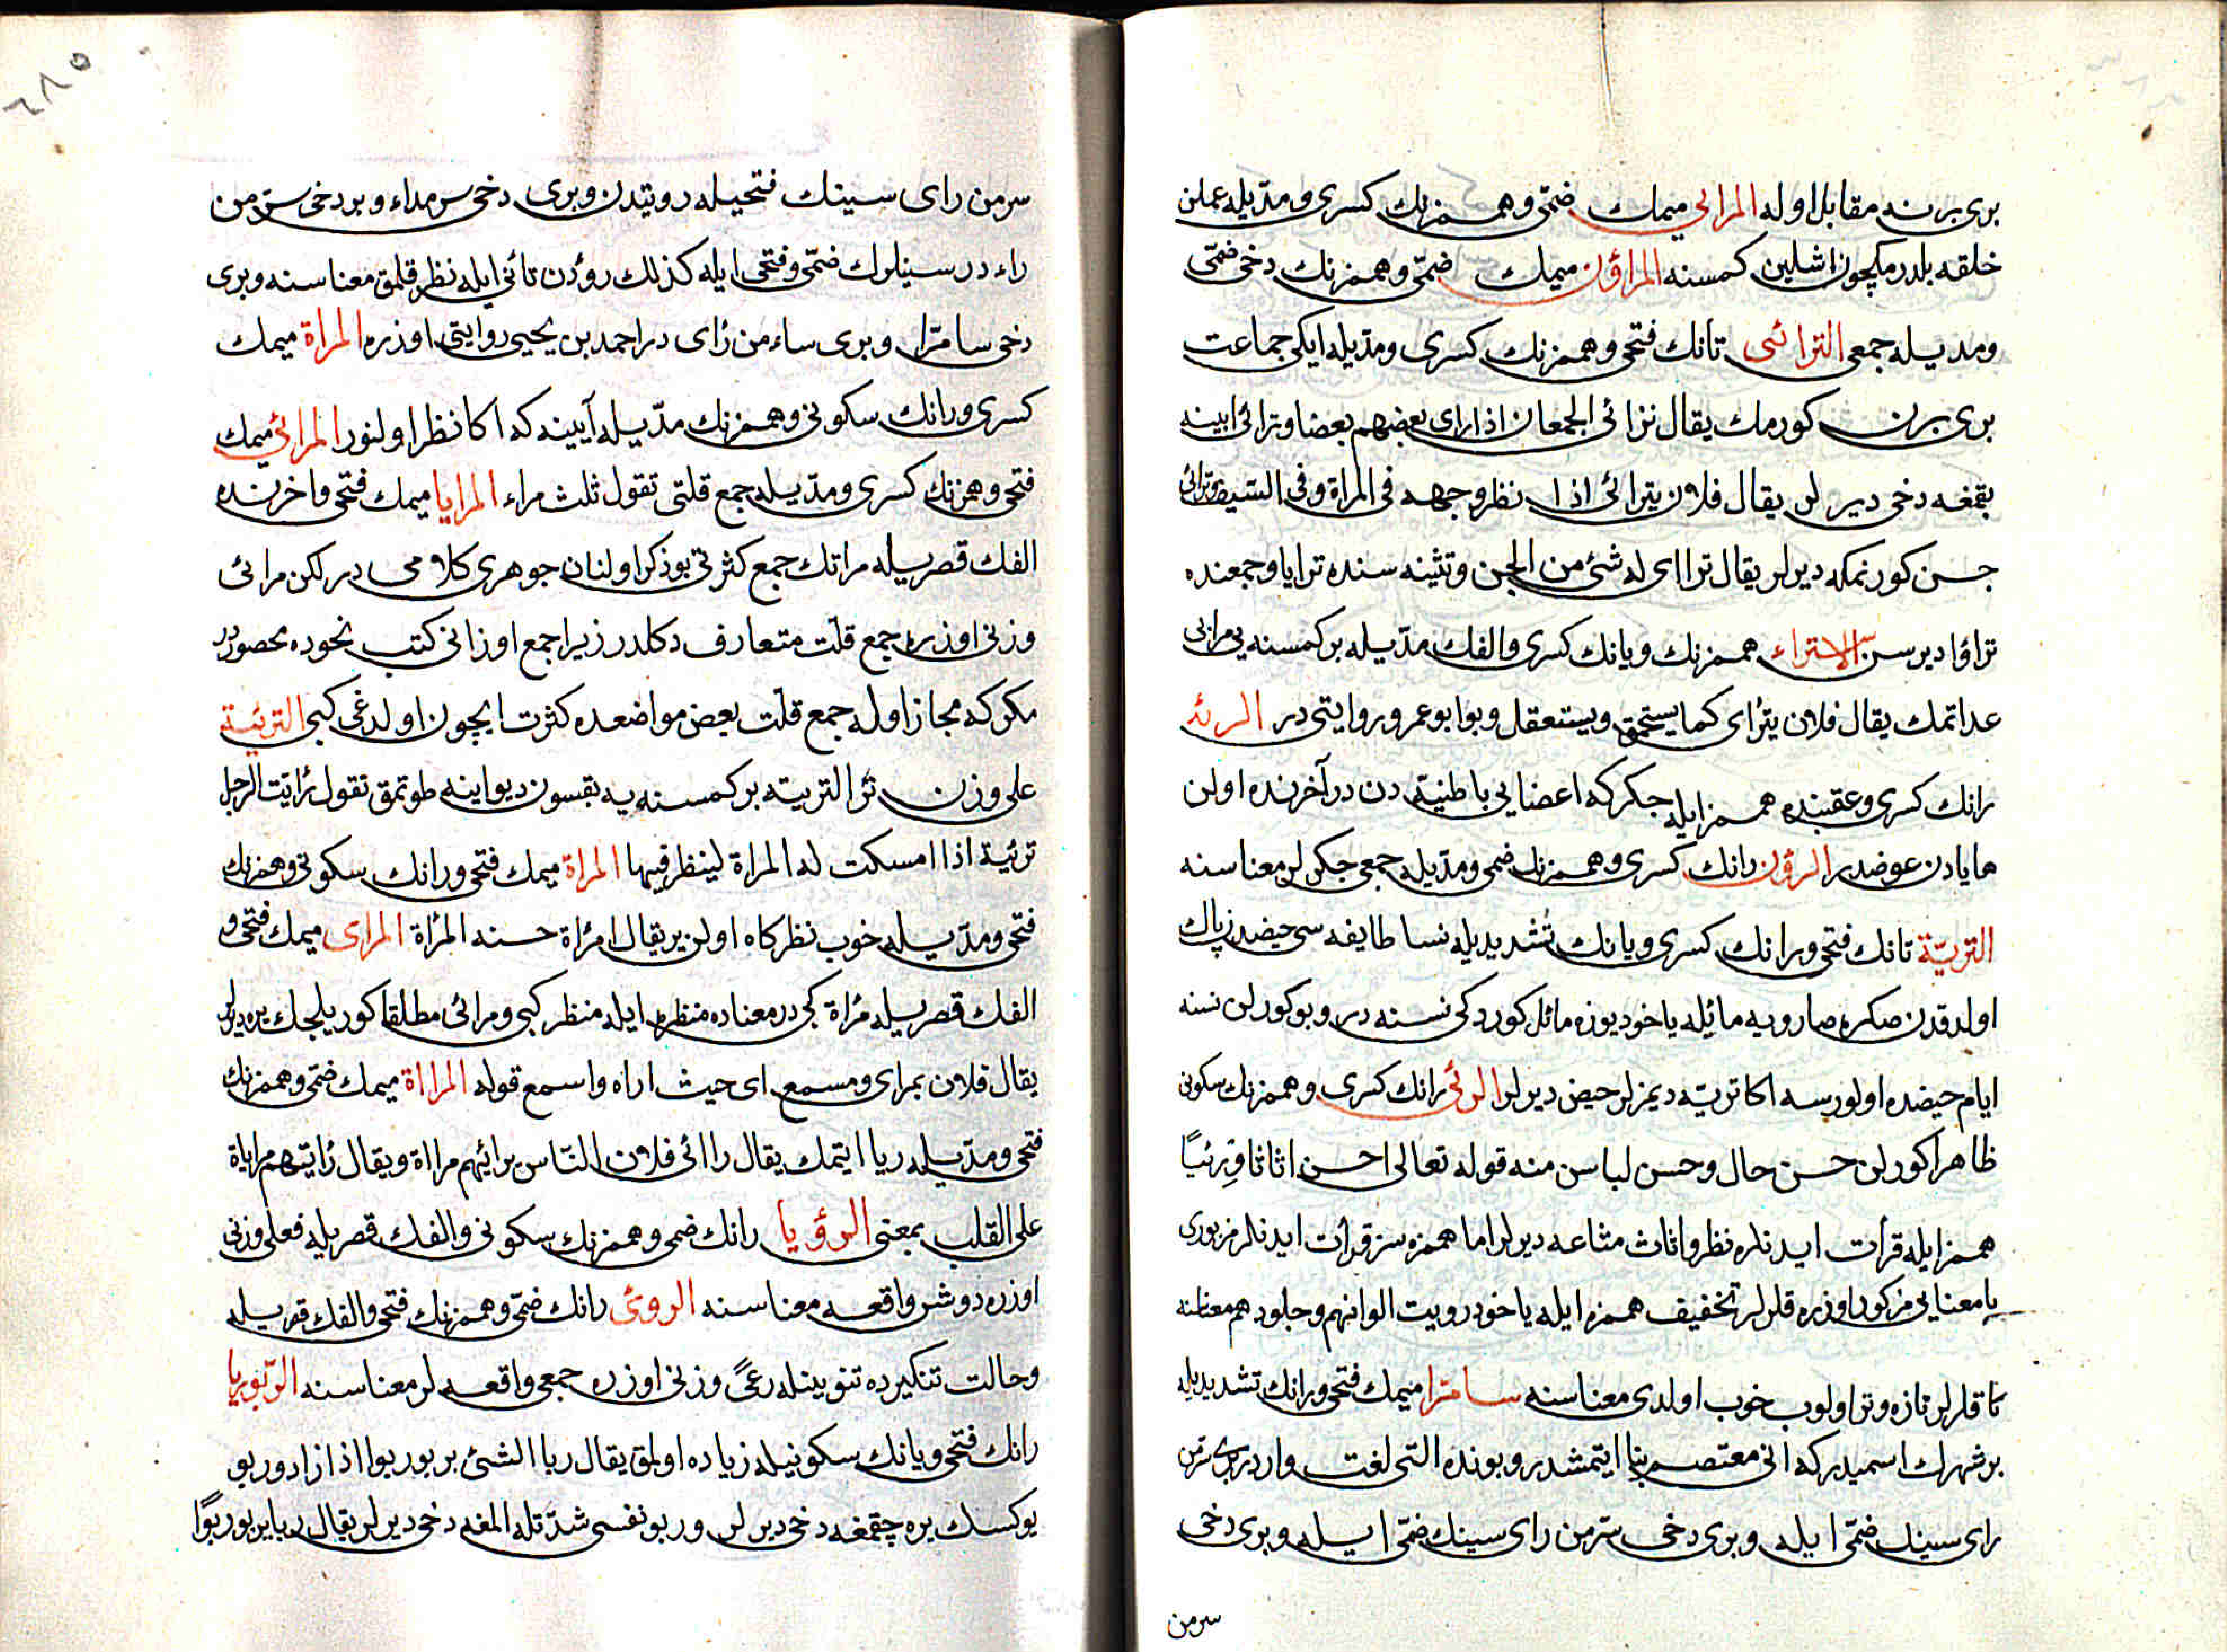 بری برنه مقابل اوله المرائی میمك ضمی وهمزنك كسری ومدیله عملن
خلقه بلدرمكچون اشلین كمسنه المراؤن میمك ضمی وهمزنك دخی ضمی
ومدیله جمعی الترائی تانك فتحی وهمزنك كسری ومدیله ایكی جماعت
بری برن كورمك یقال ترائی الجمعان اذا رای بعضهم بعضا وترائی اینه
بقمغه دخی دیرلر یقال فلان یترائی اذا نظر وجهه فی المراة وفی السیف وترائی
جن كورنمكه دیرلر یقال ترا ای له شئ من الجن وتثینه سنده ترایا وجمعنده
تراؤا دیرسن الاستراء همزنك ویانك كسری والفك مدیله بركمسنه یی مرایی
عد اتمك یقال فلان یترای كما یستحمق ویستعقل وبو ابو عمرو روایتی در الرئه
رانك كسری وعقبنده همزایله جكركه اعضایی باطنیه دن در آخرنده اولن
ها یادن عوضدر الرؤن رانك كسری وهمزنك ضمی ومدیله جمعی جكرلر معناسنه
التریّة تانك فتحی ورانك كسری ویانك تشدیدیله نسا طایفه سی حیضدن پاك
اولدقدن صكره صارویه مائیله یاخود بوزه مائل كوردكی نسنه در وبو كورلن نسنه
ایام حیضده اولورسه اكا تریّه دیمزلر حیض دیرلر الرئی رانك كسری وهمزنك سكونی
ظاهرا كورلن حسن حال وحسن لباسن منه قوله تعالی احسن اثاثا ورئیًا
همزایله قرأت ایدنلره نظر واثاث متاعه دیرلر اما همزه سز قرأت ایدنلر مزبوری
یا معنایی مزكور اوزره قلرلر تخفیف همزه ایله یاخود رویت الوانهم وجلودهم معناسنه
تاقلرلر تازه وتر اولوب خوب اولدی معناسنه سامرّا میمك فتحی ورانك تشدیدیله
برشهرك اسمیدركه انی معتصم بنا ایتمشدر وبونده التی لغت واردر بری سرمن
رای سینك ضمی ایله وبری دخی سرمن رای سینك ضمی ایله وبری دخی
سرمن
٦٨٥
سرمن رای سینك فتحیله رویتدن وبری دخی سرمداء وبر دخی سرمن
راء در سینلرك ضمی وفتحی ایله كذلك رؤدن تائی ایله نظر قلمق معناسنه وبری
دخی سامرّا وبری ساء من رأی در احمد بن یحیی روایتی اوزره المراة میمك
كسری ورانك سكونی وهمزنك مدّیله آیینه كه اكا نظر اولنور المرائی میمك
فتحی وهمزنك كسری ومدیله جمع قلتی تقول ثلث مراء المرایا میمك فتحی واخرنده
الفك قصریله مراتك جمع كثرتی بو ذكر اولنان جوهری كلامی در لكن مرائی
وزنی اوزره جمع قلت متعارف دكلدر زیرا جمع اوزانی كتب نحوده محصوردر
مكركه مجاز اوله جمع قلت بعض مواضعده كثرت ایچون اولدغی كبی الترئیة
علی وزن التربیه بركمسنه یه بقسون دیو اینه طوتمق تقول رأیت الرجل
ترئیة اذا امسكت له المراة لینظر فیها المراة میمك فتحی ورانك سكونی وهمزنك
فتحی ومدّیله خوب نظركاه اولن یر یقال امرأة حسنه المرأة المرای میمك فتحی و
الفك قصریله مرأة كبی در معناده منظره ایله منظر كبی ومرائی مطلقا كوریلجك یره دیرلر
یقال فلان بمرای ومسمع ای حیث اراه واسمع قوله المرااة میمك ضمی وهمزنك
فتحی ومدّیله ریا ایتمك یقال راائی فلان الناس یرائیهم مرااة ویقال رایتهم مرایاة
علی القلب بمعنی الرؤیا رانك ضمی وهمزنك سكونی والفك قصریله فعلی وزنی
اوزره دوش واقعه معناسنه الروئی رانك ضمی وهمزنك فتحی والفك قصریله
وحالت تنكیرده تنوینله رعًی وزنی اوزره جمعی واقعه لر معناسنه الرّبو ربا
رانك فتحی وبانك سكونیله زیاده اولمق یقال ربا الشئ یربو ربوا اذا زاد وربو
یوكسك یره چقمغه دخی دیرلر وربو نفسی شدّتله المغه دخی دیرلر یقال ربا یربو ربوًا